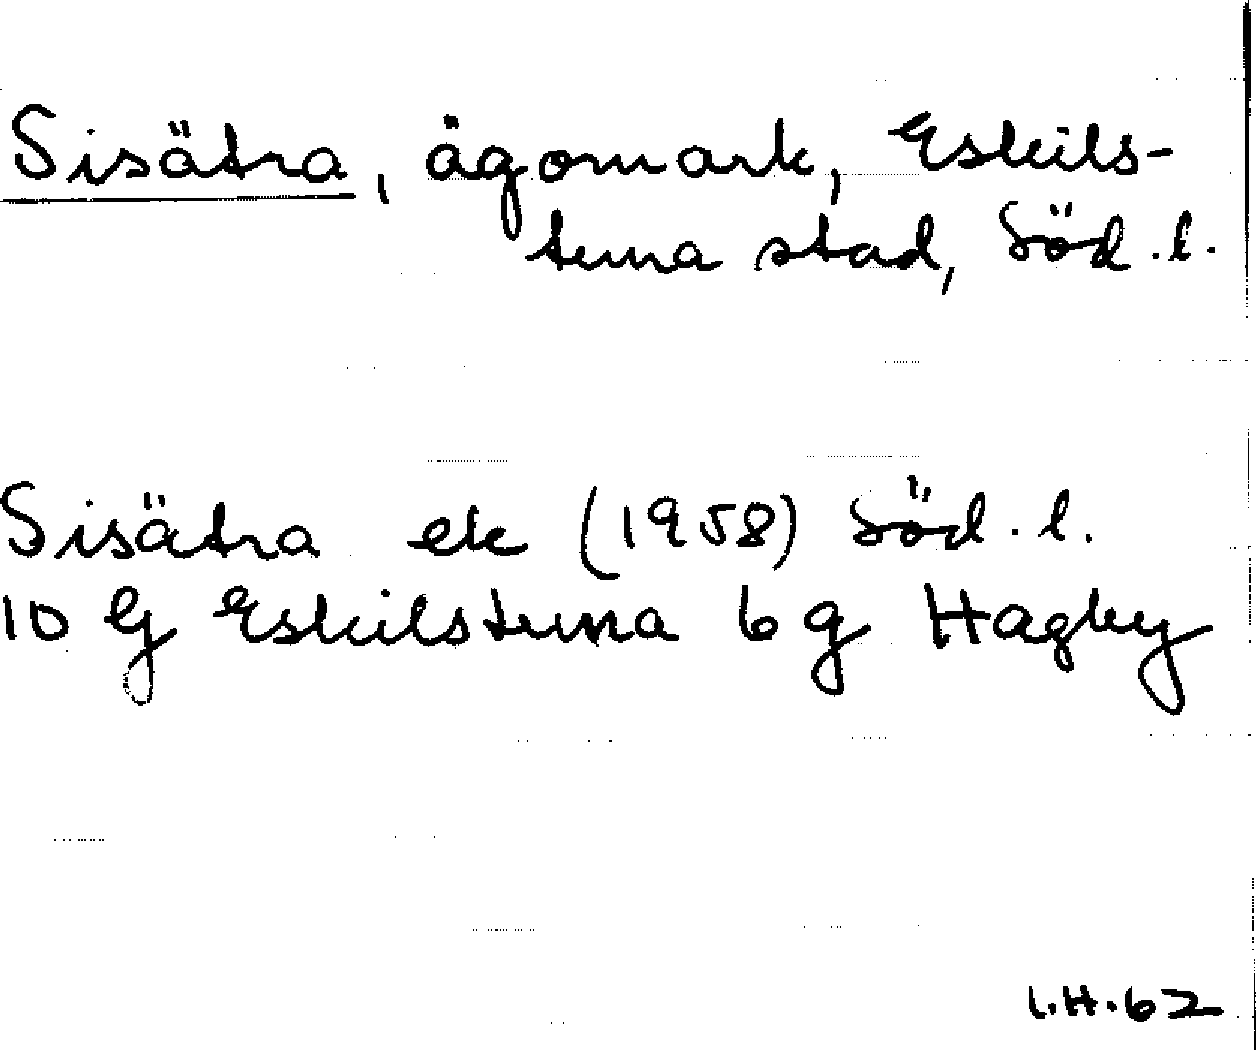 Sisätra, ägomark, Eskils-
tuna stad, Söd. l.
Sisätra ek (1958) Söd. l.
10 G Eskilstuna 6 g Hagby
I.H.62